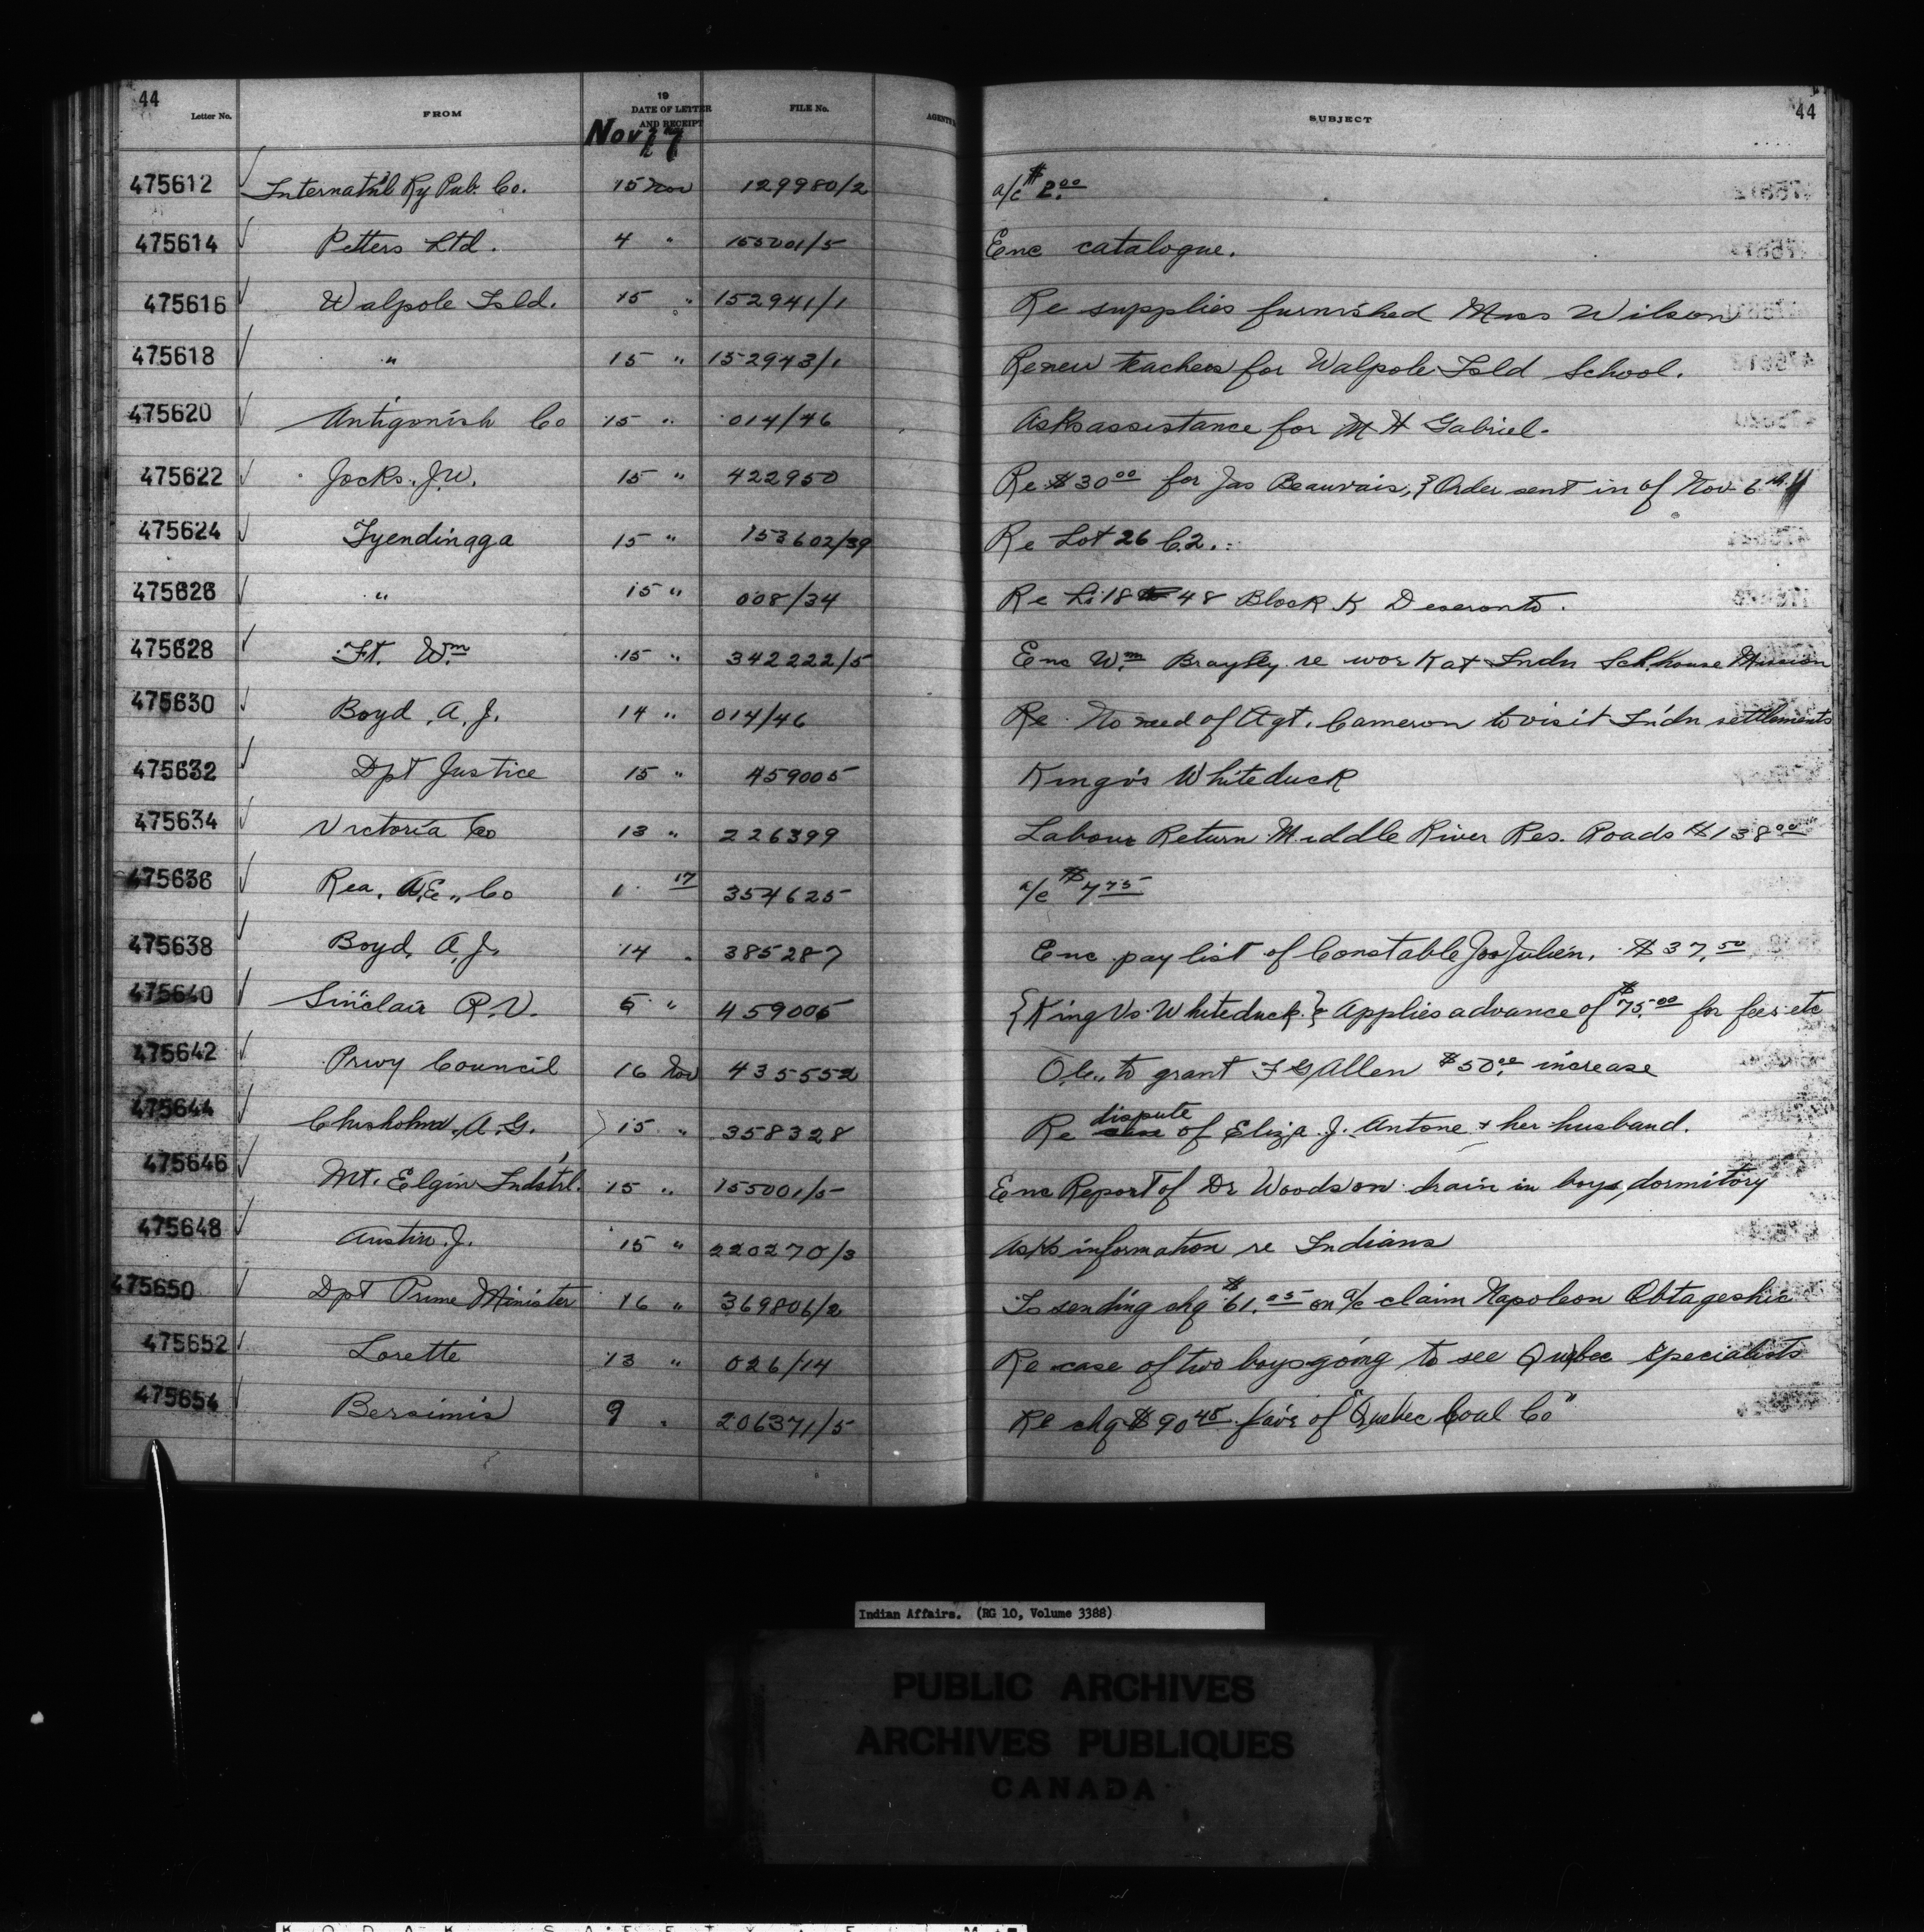 44
Letter No. FROM 19 DATE OF LETTER AND RECEIPT FILE No. AGENT'S SUBJECT 44
Nov 17
475612 Internat'nl Ry Pub. Co. 15 Nov 129980/2 a/c $2.00
475614 Petters Ltd. 4 " 155001/5 Enc catalogue.
475616 Walpole Isld. 15 " 152941/1 Re supplies furnished Miss Wilson
475618 " 15 " 152943/1 Re new teachers for Walpole Isld School.
475620 Antigonish Co 15 " 014/46 Asks assistance for M H Gabriel.
475622 Jocks. J.W. 15 " 422950 Re $30.00 for Jas Beauvais, & Order sent in of Nov 6th
475624 Tyendinaga 15 " 153602/39 Re Lot 26 C.2.
475626 " 15 " 008/34 Re 18 48 Block K Deseronto.
475628 Ft. Wm 15 " 342222/5 Enc Wm Brayley re work at Indn Sch. house Mission
475630 Boyd, A. J. 14 " 014/46 Re No need of Agt. Cameron to visit Indn settlements
475632 Dpt Justice 15 " 459005 King vs Whiteduck
475634 Victoria Co 13 " 226399 Labour Return Middle River Res. Roads $138.00
475636 Rea, A.E., Co 1 17 354625 a/c $7.75
475638 Boyd, A. J. 14 " 385287 Enc pay list of Constable Jos Julien, $37.50
475640 Sinclair R.V. 5 " 459005 {King Vs Whiteduck.} & Applies advance of $75.00 for fees etc
475642 Privy Council 16 Nov 435552 O.C., to grant F G Allen $50.00 increase
475644 Chisholm, A. G. 15 " 358328 Re dispute of Eliza J. Antone & her husband.
475646 Mt. Elgin Indstrl. 15 " 155001/5 Enc Report of Dr Woods on drain in boys dormitory
475648 Austin. J. 15 " 220270/3 Asks information re Indians
475650 Dpt Prime Minister 16 " 369806/2 Is sending chq $61.05 on a/c claim Napoleon Obtageshic
475652 Lorette 13 " 026/14 Re case of two boys going to see Quebec specialists
475654 Bersimis 9 " 206371/5 Re chq $90.45 fav'r of "Quebec Coal Co"
Indian Affairs. (RG 10, Volume 3388)
PUBLIC ARCHIVES
ARCHIVES PUBLIQUES
CANADA